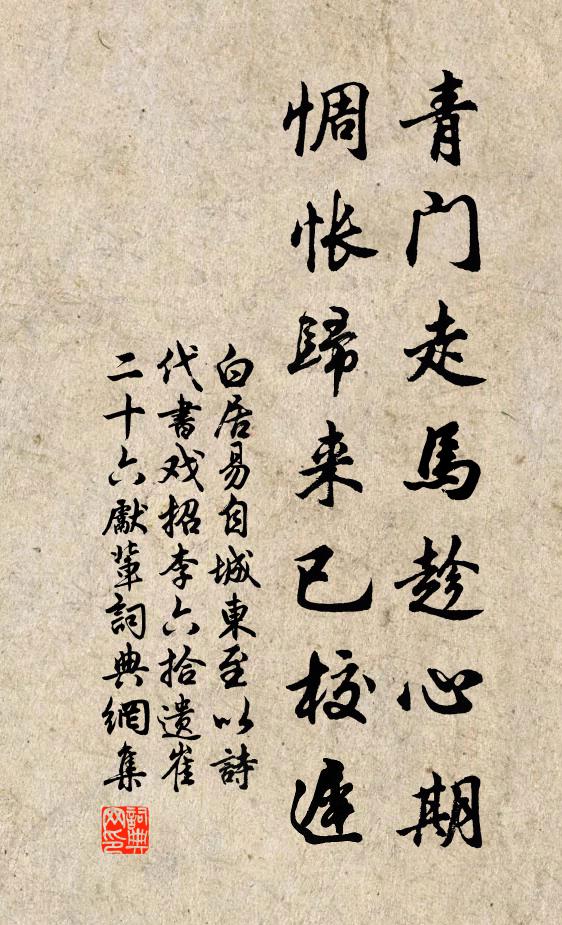 青门走馬趁心期
惆怅歸来已校遲
白居易自城東至以詩
代書戏招李六拾遗崔
二十六獻輩詞典網集
詞典
网印